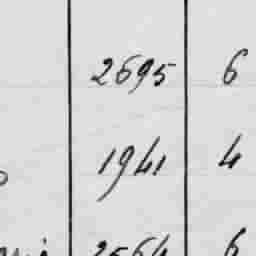 2695 6
1941 4
2564 6